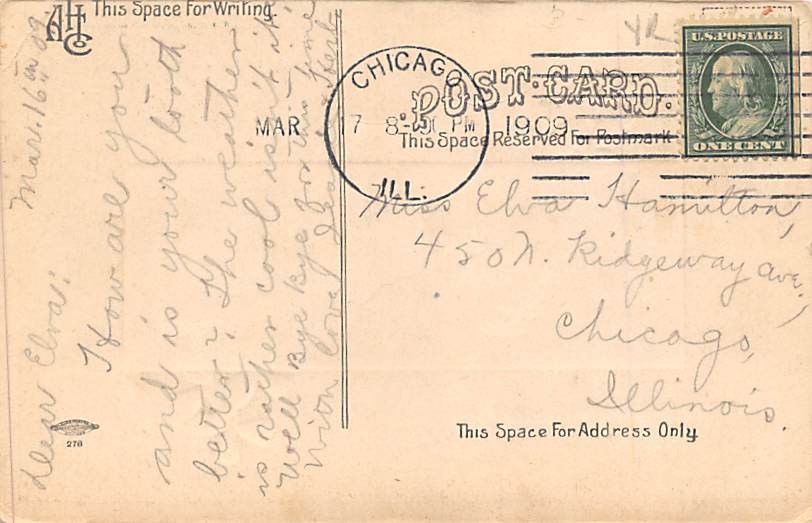 AH Co
This Space For Writing.
Mar. 16th 09
Dear Elva:
How are you
and is your tooth
better? The weather
is rather cool isn't it
Well Bye Bye for this time
With love
278
CHICAGO
ILL.
MAR 17 8- PM 1909
POST·CARD.
This Space Reserved For Postmark
U.S. POSTAGE
ONE CENT
Miss Elva Hamilton,
450 N. Ridgeway Ave,
Chicago,
Illinois.
This Space For Address Only.